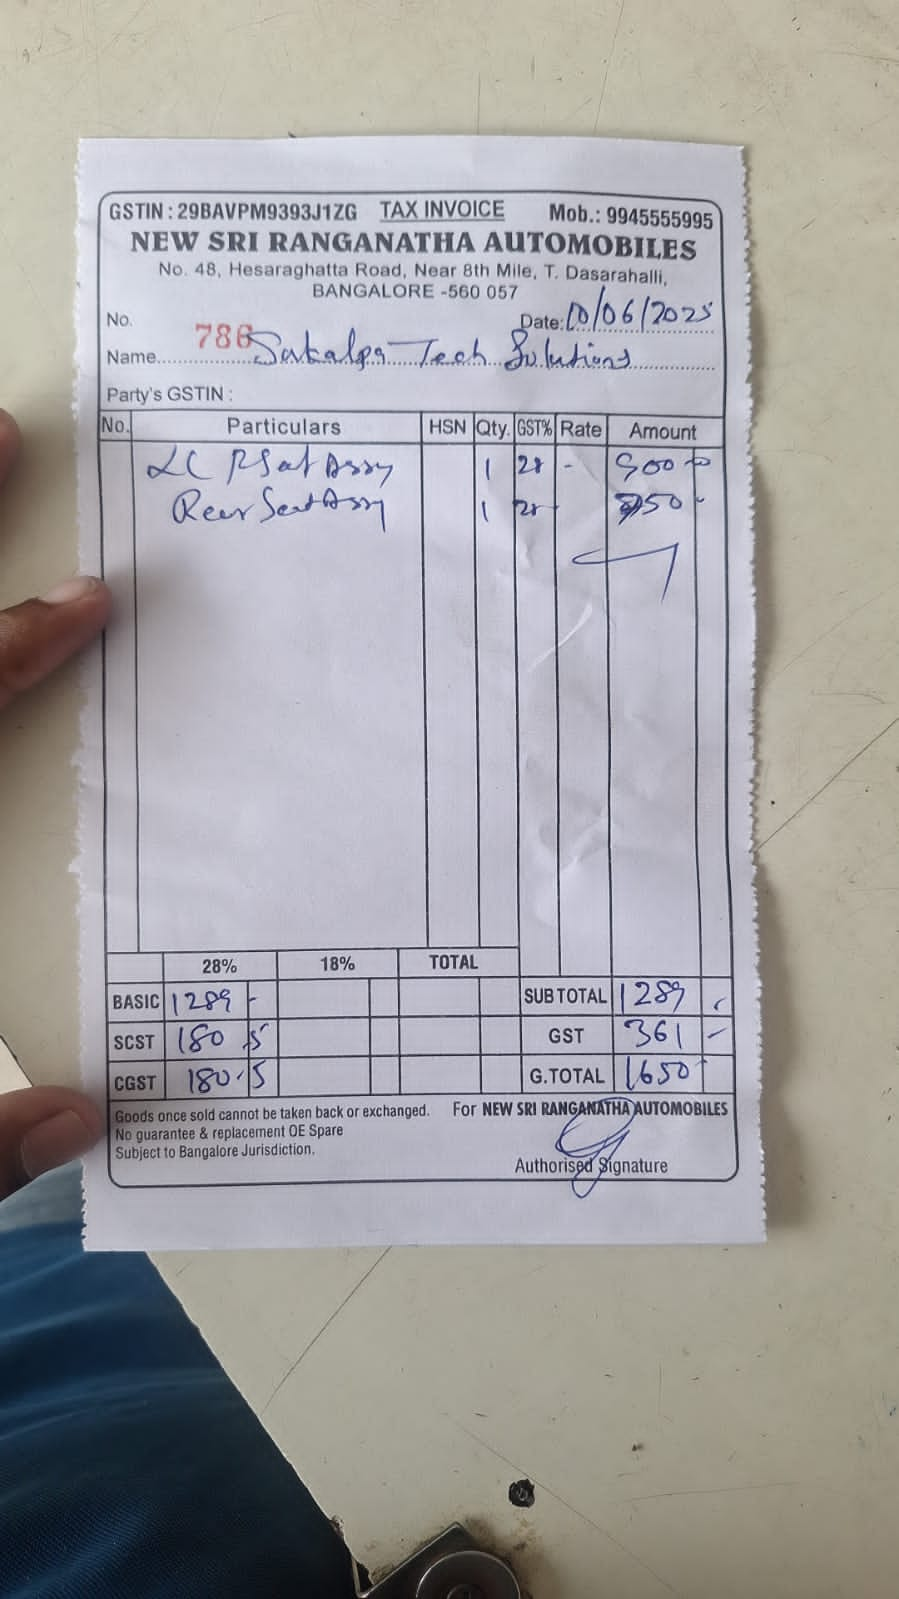 GSTIN : 29BAVPM9393J1ZG TAX INVOICE Mob.: 9945555995
NEW SRI RANGANATHA AUTOMOBILES
No. 48, Hesaraghatta Road, Near 8th Mile, T. Dasarahalli,
BANGALORE -560 057
No. 786 Date: 10/06/2025
Name Sakalpa Tech Solutions
Party's GSTIN :
No. Particulars HSN Qty. GST% Rate Amount
Assy 1 28 - 900
Rear Seat Assy 1 28 - 750 -
28% 18% TOTAL
BASIC 1289 - SUB TOTAL 1289
SCST 180 5 GST 361 -
CGST 180.5 G.TOTAL 1650
Goods once sold cannot be taken back or exchanged. For NEW SRI RANGANATHA AUTOMOBILES
No guarantee & replacement OE Spare
Subject to Bangalore Jurisdiction.
Authorised Signature